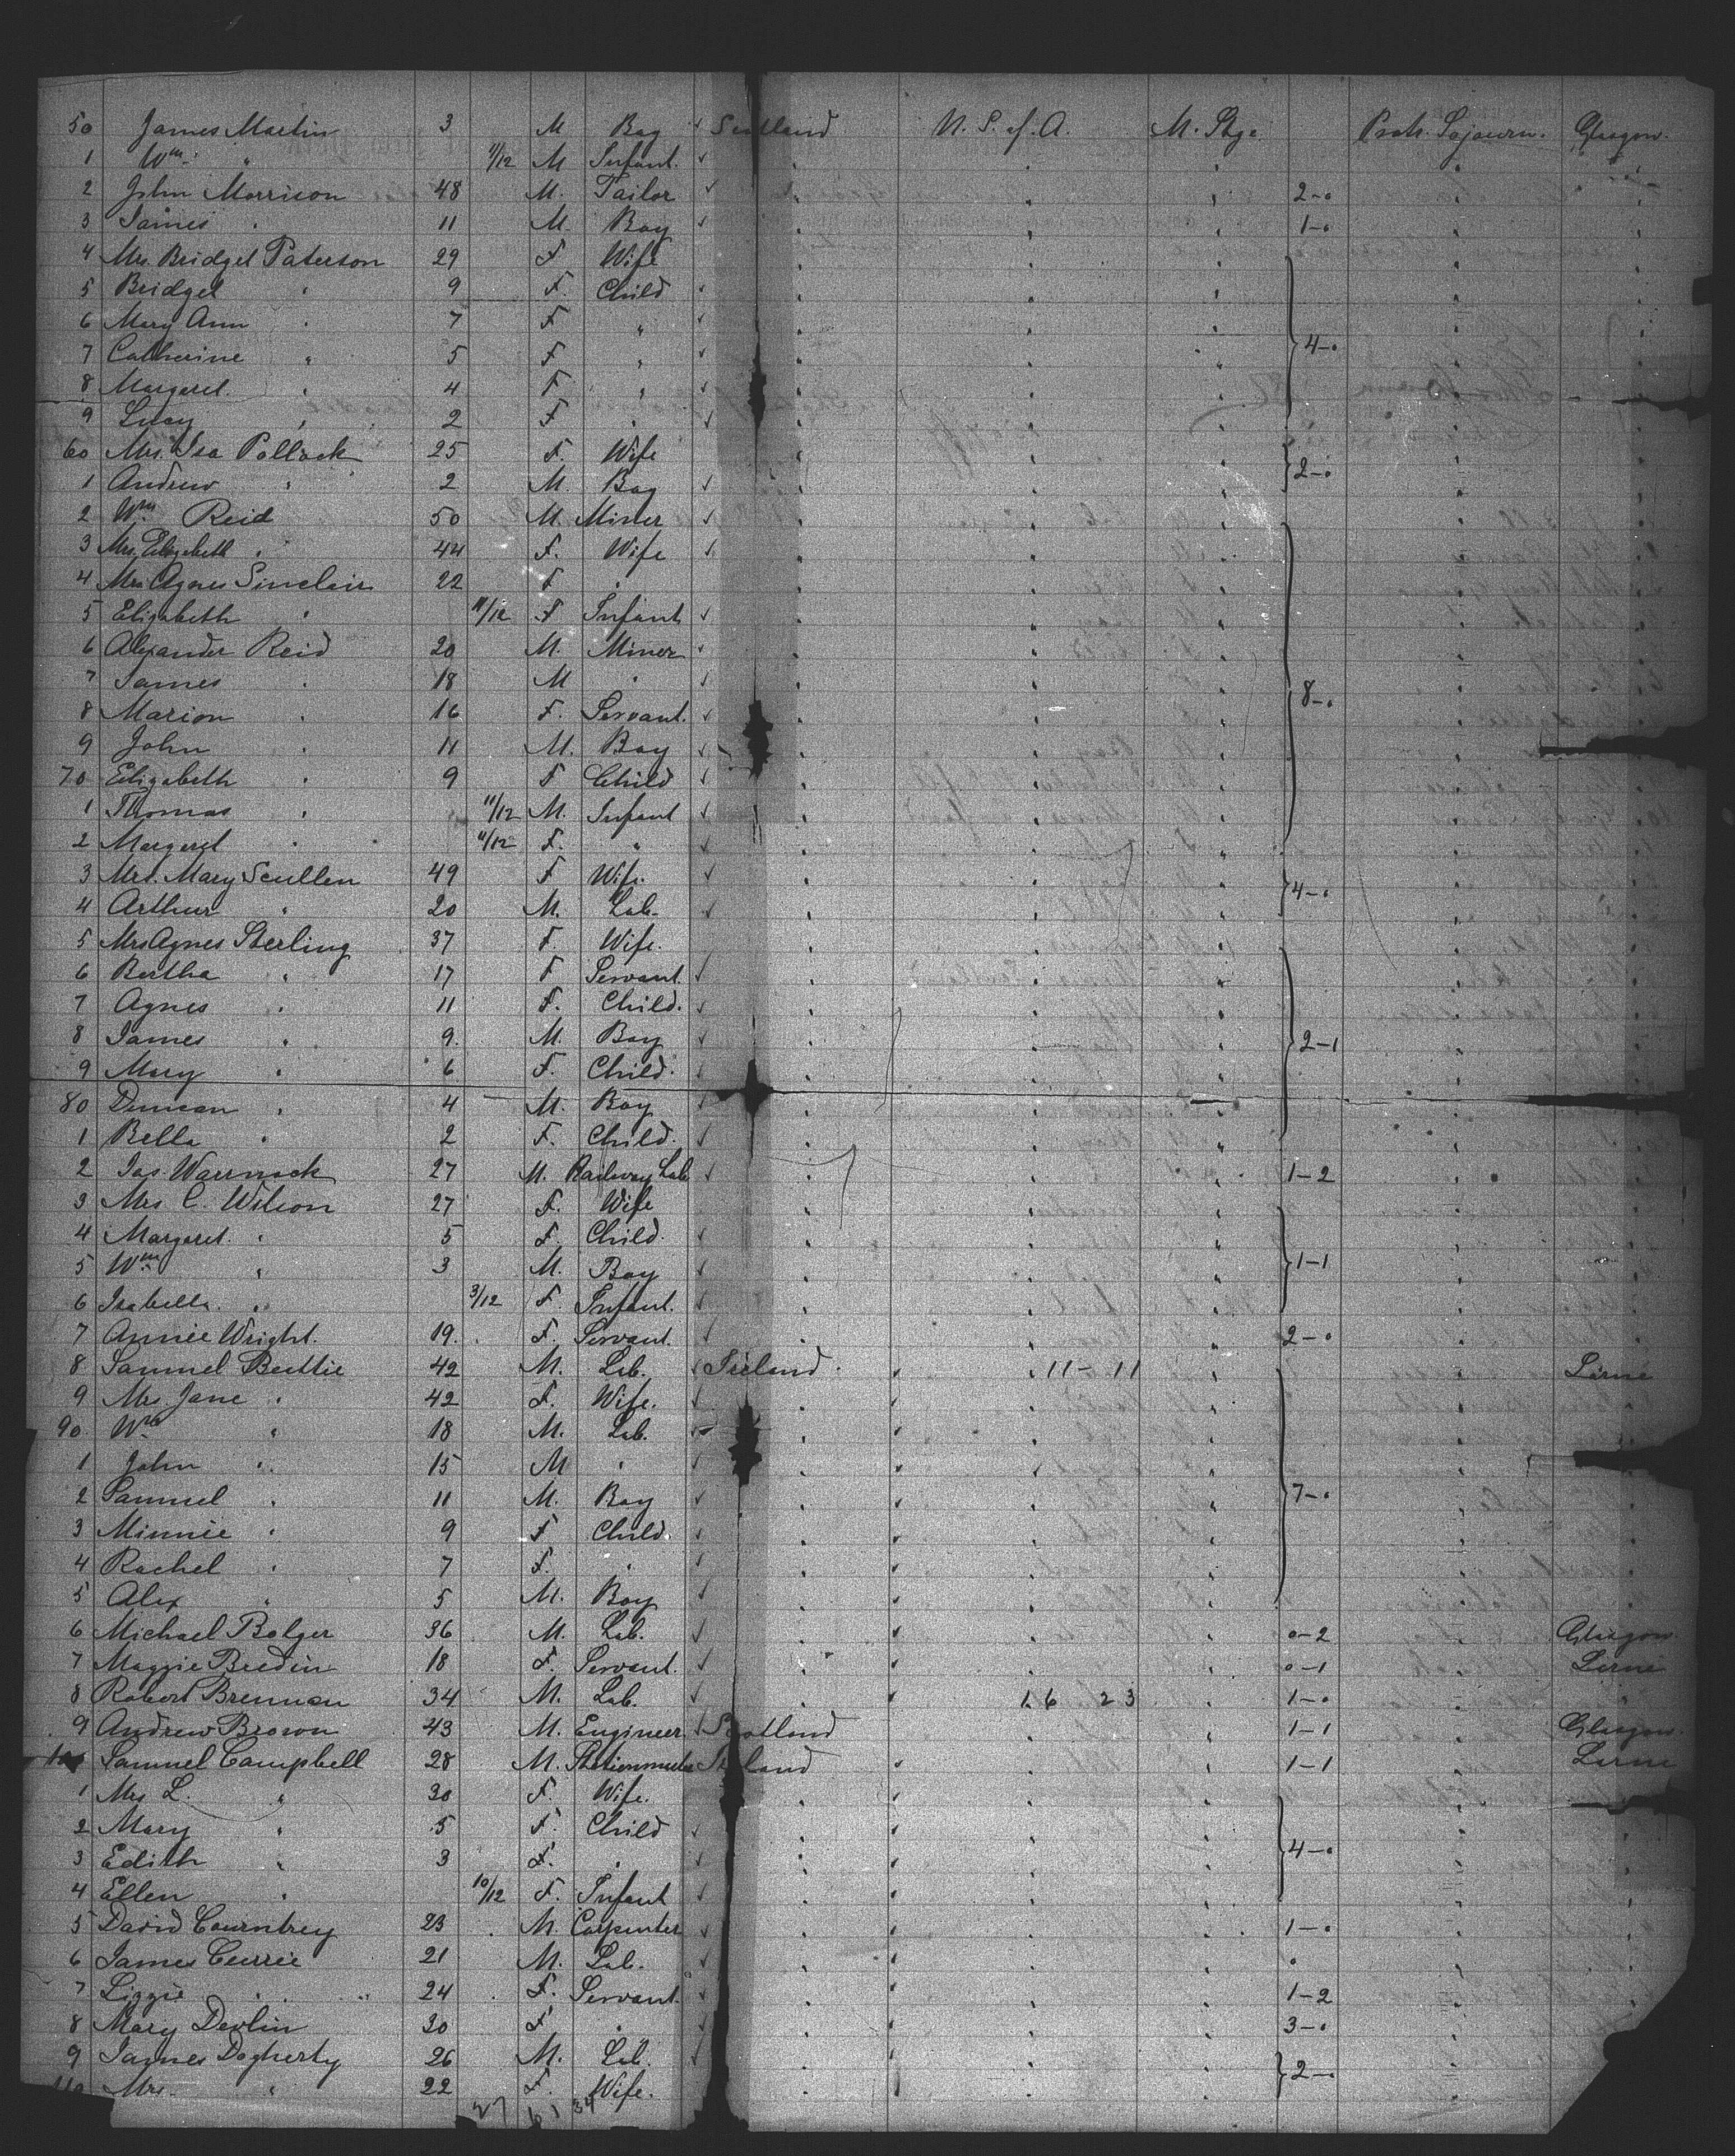 50 James Martin 3 M Boy ✓ Scotland U. S. of. A. M. Stge Prot. Sojourn. Glasgow.
1 Wm. " 11/12 M Infant. ✓
2 John Morrison 48 M. Tailor ✓ 2-0
3 James " 11 M. Boy ✓ 1-0
4 Mrs. Bridget Paterson 29 F Wife
5 Bridget " 9 F. Child ✓
6 Mary Ann " 7 F " ✓
7 Catherine " 5 F " ✓ 4-0
8 Margaret. " 4 F " ✓
9 Lucy " 2 F " ✓
60 Mrs. Isa Pollock 25 F. Wife
1 Andrew " 2 M. Boy ✓ 2-0
2 Wm Reid 50 M. Miner ✓
3 Mrs. Elizabeth " 44 F. Wife ✓
4 Mrs Agnes Sinclair 22 F "
5 Elizabeth " 11/12 F Infant ✓
6 Alexander Reid 20 M. Miner ✓
7 James " 18 M " ✓ 8-0
8 Marion " 16 F. Servant. ✓
9 John " 11 M. Boy ✓
70 Elizabeth " 9 F Child ✓
1 Thomas " 11/12 M. Infant ✓
2 Margaret " 11/12 F. " ✓
3 Mrs. Mary Scullen 49 F Wife. ✓ 4-0
4 Arthur " 20 M. Lab. ✓
5 Mrs Agnes Sterling 37 F. Wife.
6 Bertha " 17 F Servant. ✓
7 Agnes " 11 F. Child. ✓
8 James " 9. M. Boy ✓ 2-1
9 Mary " 6 F. Child. ✓
80 Duncan " 4 M. Boy ✓
1 Bella " 2 F. Child. ✓
2 Jas. Warrnock 27 M. Railway Lab ✓ 1-2
3 Mrs C. Wilson 27 F. Wife
4 Margaret. " 5 F. Child. ✓
5 Wm. " 3 M. Boy ✓ 1-1
6 Isabella. " 3/12 F. Infant. ✓
7 Annie Wright. 19. F. Servant. ✓ 2-0
8 Samuel Beattie 42 M. Lab. ✓ Ireland. 11- 11 Larne
9 Mrs Jane " 42 F. Wife. ✓
90. Wm. " 18 M. Lab. ✓
1 John " 15 M " ✓
2 Samuel " 11 M. Boy ✓ 7-0
3 Minnie " 9 F Child. ✓
4 Rachel " 7 F. " ✓
5 Alex " 5 M. Boy ✓
6 Michael Bolger 36 M. Lab. ✓ 0-2 Glasgow.
7 Maggie Bredin 18 F. Servant. ✓ 0-1 Larne
8 Robert Brennan 34 M. Lab. ✓ 16 23 1-0 "
9 Andrew Brown 43 M. Engineer. ✓ Scotland 1-1 Glasgow.
Samuel Campbell 28 M. Ireland 1-1 Larne
1 Mrs L. " 30 F. Wife.
2 Mary " 5 F. Child ✓
3 Edith " 3 F. " ✓ 4-0
4 Ellen " 10/12 F. Infant ✓
5 David 23 M. Carpenter ✓ 1-0
6 James Currie 21 M. Lab. ✓ 0
7 Lizzie " 24 F. Servant. ✓ 1-2
8 Mary Devlin 30 F " ✓ 3-0
9 James Dogherty 26 M. Lab. ✓
110 Mrs. " 22 F. Wife. 2-0
27 61 34